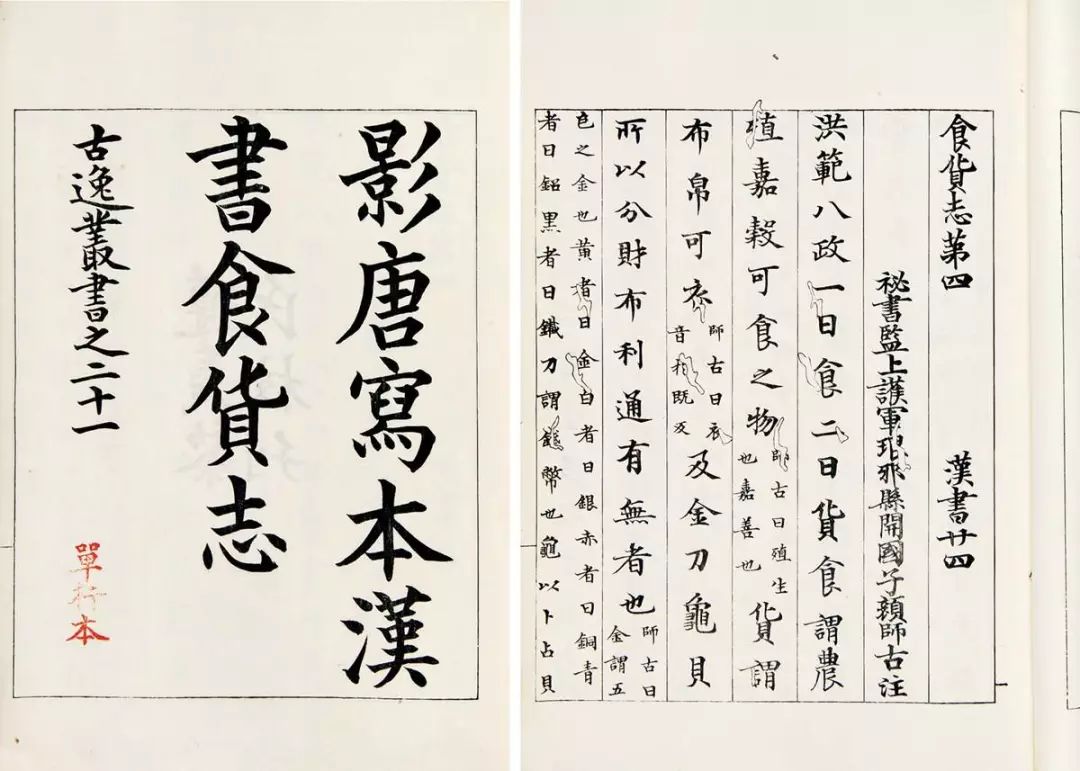 影唐寫本漢
書食貨志
古逸叢書之二十一
單行本
食貨志第四 漢書廿四
秘書監上護軍琅邪縣開國子顏師古注
洪範八政一曰食二曰貨食謂農
殖嘉穀可食之物師古曰殖生也嘉善也貨謂
布帛可衣師古曰衣音於既反及金刀龜貝
所以分財布利通有無者也師古曰金謂五
色之金也黃者曰金白者曰銀赤者曰銅青
者曰鉛黑者曰鐵刀謂錢幣也龜以卜占貝